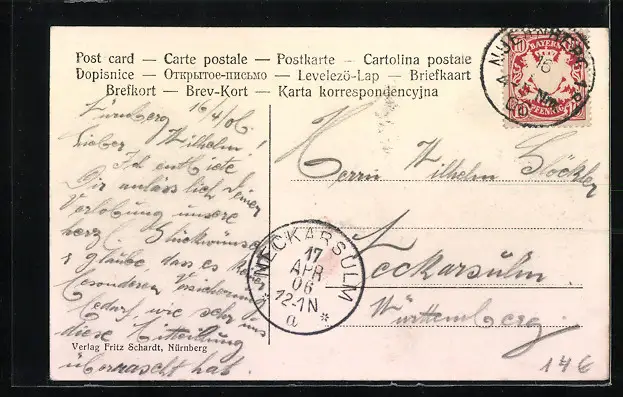 Post card — Carte postale — Postkarte — Cartolina postale
Dopisnice — Открытое-письмо — Levelező-Lap — Briefkaart
Brefkort — Brev-Kort — Karta korrespondencyjna
Nürnberg 16/4/06.
Lieber Wilhelm!
Ich entbiete
Dir anlässlich Deiner
Verlobung unsere
herz. Glückwünsche
glaube, dass es keiner
besonderen Versicherung
bedarf, wie sehr uns
diese Mitteilung
überrascht hat.
Verlag Fritz Schardt, Nürnberg
BAYERN
10
PFENNIG
NUERNBERG
16
Nm.
06
Herrn Wilhelm
Neckarsulm.
Württemberg.
NECKARSULM
17
APR
06
12-1N
a *
14€